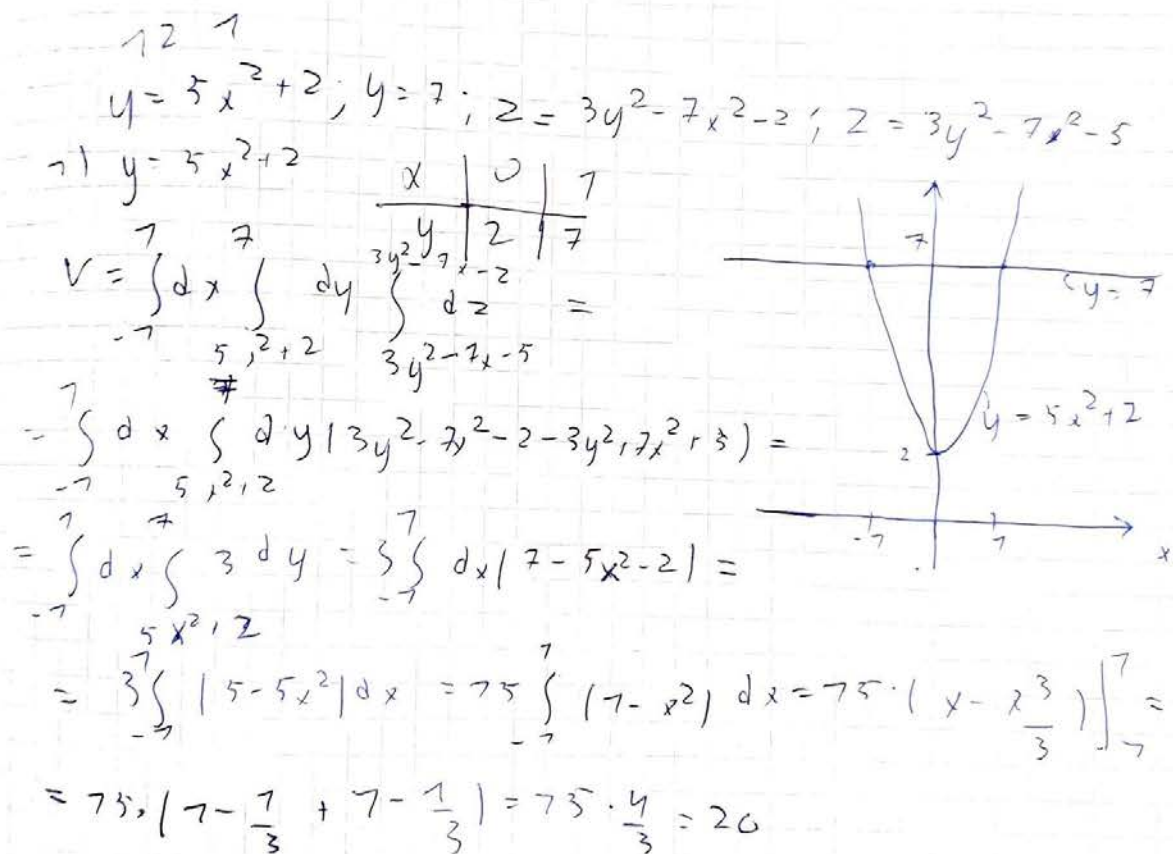 12 1
y = 5x² + 2; y = 7; z = 3y² - 7x² - 2; z = 3y² - 7x² - 5
1) y = 5x² + 2
x | 0 | 1
y | 2 | 7
V = ∫_{-1}^{1} dx ∫_{5x²+2}^{7} dy ∫_{3y²-7x-5}^{3y²-7x-2} dz =
= ∫_{-1}^{1} dx ∫_{5x²+2}^{7} dy (3y² - 7x² - 2 - 3y² + 7x² + 5) =
= ∫_{-1}^{1} dx ∫_{5x²+2}^{7} 3 dy = 3 ∫_{-1}^{1} dx (7 - 5x² - 2) =
= 3 ∫_{-1}^{1} (5 - 5x²) dx = 15 ∫_{-1}^{1} (1 - x²) dx = 15 · (x - x³/3) |_{-1}^{1} =
= 15 · (1 - 1/3 + 1 - 1/3) = 15 · 4/3 = 20
7
y = 7
y = 5x² + 2
2
-1 1
x